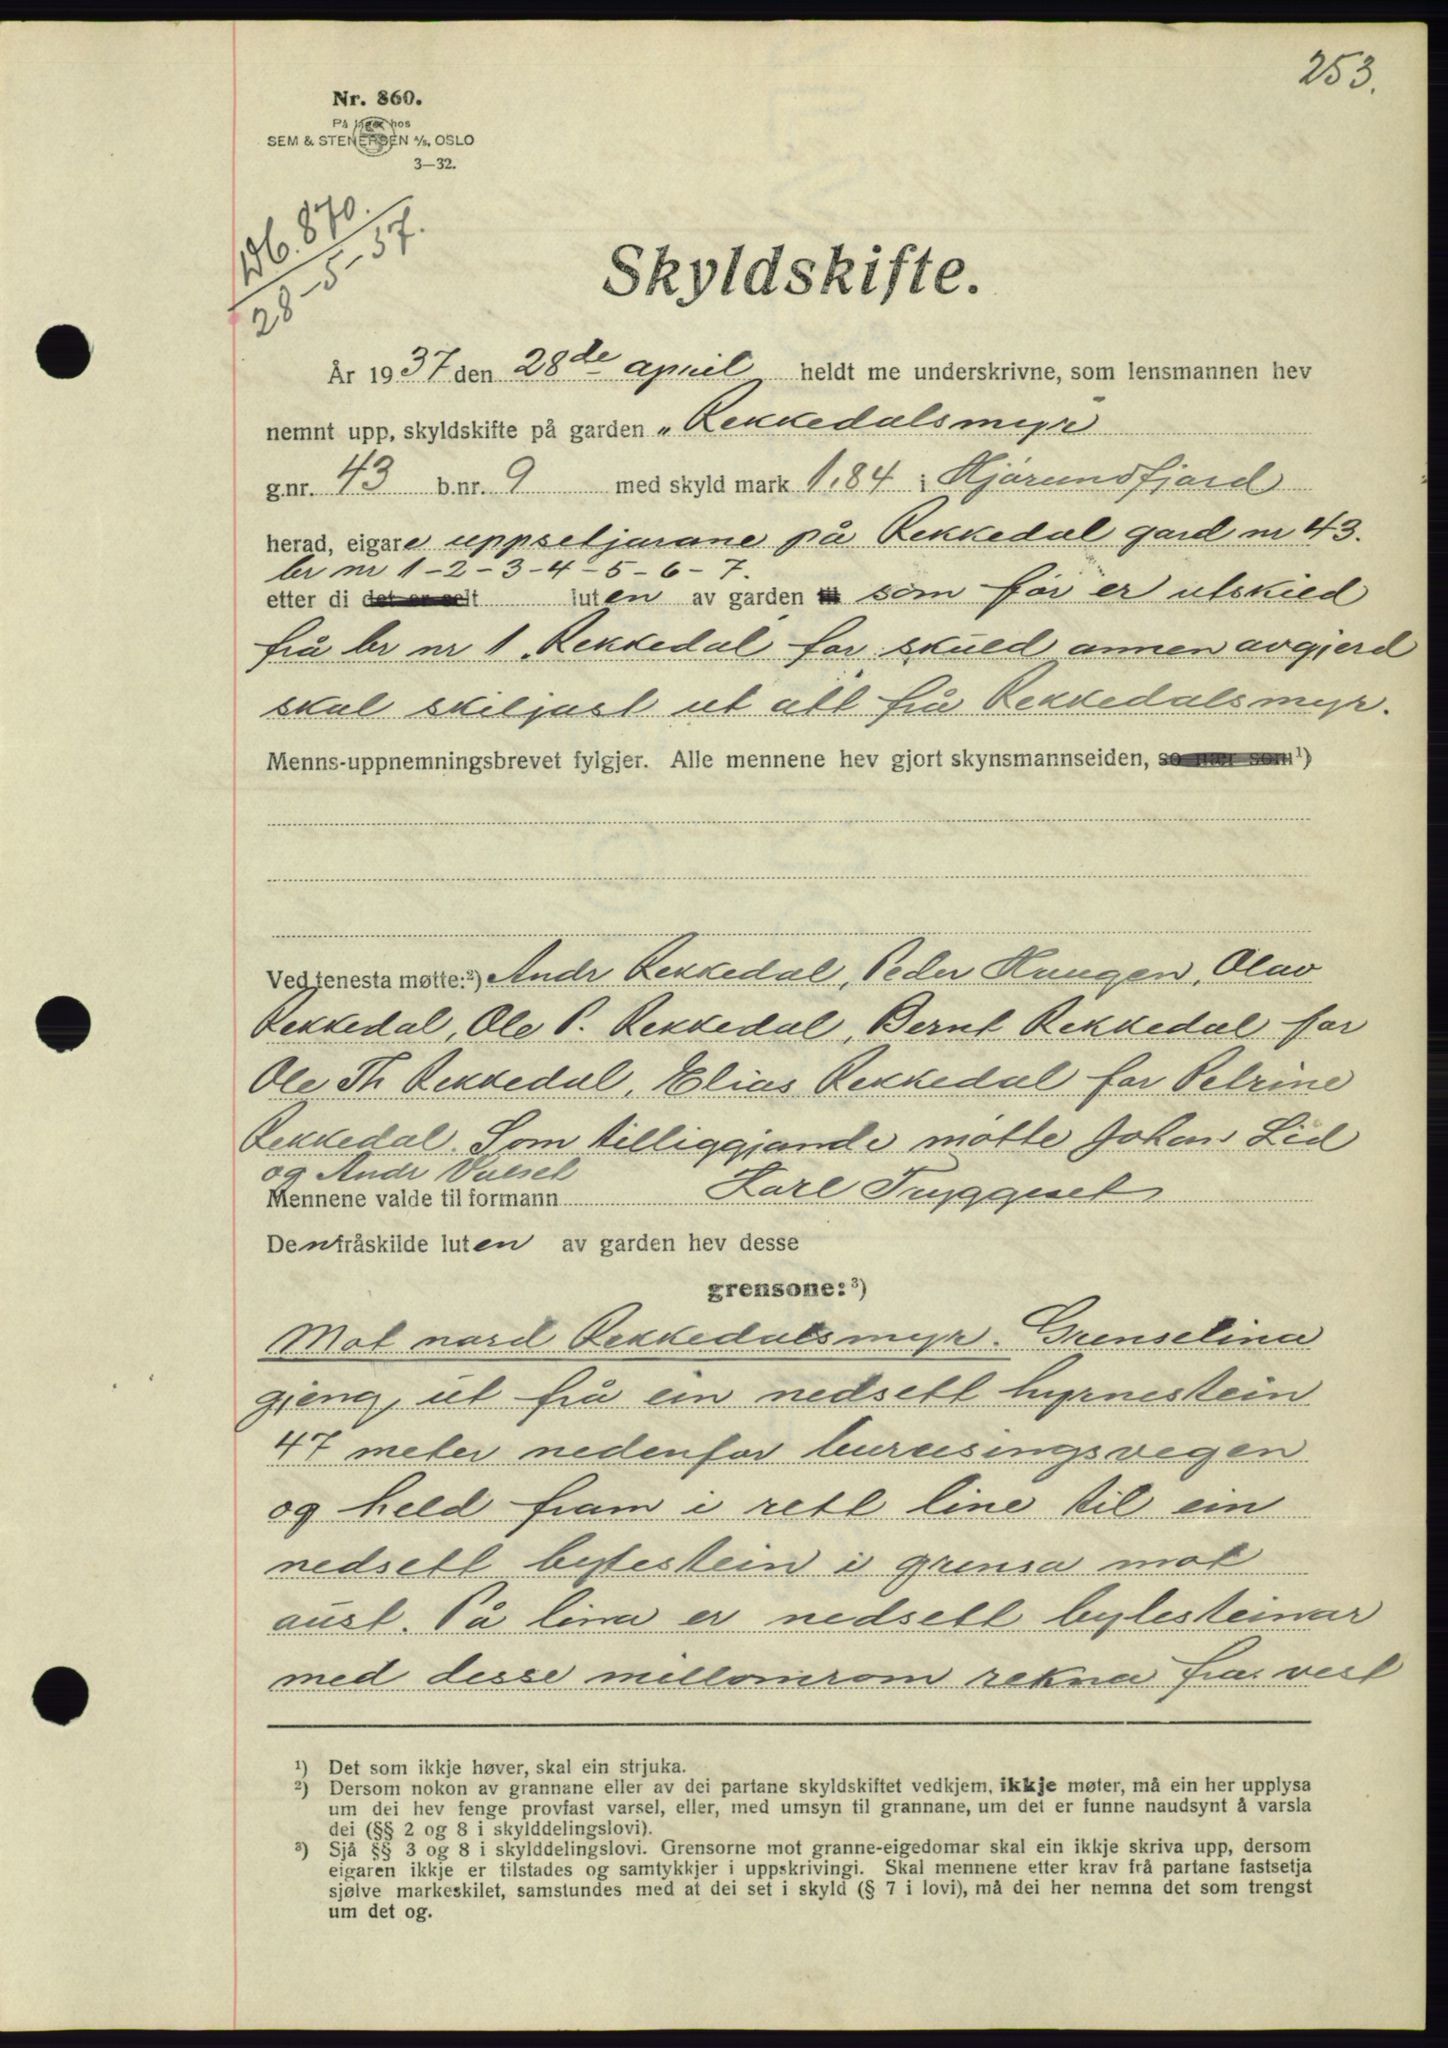 253.
Nr. 860.
På lager hos
SEM & STENERSEN A/S, OSLO
3—32.
Db. 870.
28-5-37.
Skyldskifte.
År 1937 den 28de april heldt me underskrivne, som lensmannen hev
nemnt upp, skyldskifte på garden „Rekkedalsmyr"
g.nr. 43 b.nr. 9 med skyld mark 1,84 i Hjørundfjord
herad, eigare uppsetjarane på Rekkedal gard nr 43.
br nr 1-2-3-4-5-6-7.
etter di det er selt luten av garden til som før er utskied
frå br nr 1 „Rekkedal" for skuld annen avgjerd
skal skiljast ut att frå Rekkedalsmyr.
Menns-uppnemningsbrevet fylgjer. Alle mennene hev gjort skynsmannseiden, so nær som¹)
Ved tenesta møtte:²) Andr Rekkedal, Peder Haugen, Olav
Rekkedal, Ole P. Rekkedal, Bernt Rekkedal for
Ole Th Rekkedal, Elias Rekkedal for Petrine
Rekkedal. Som tilliggjande møtte Johan Lid
og Andr Valset
Mennene valde til formann Karl Tryggeset
Den fråskilde luten av garden hev desse
grensone:³)
Mot nord Rekkedalsmyr. Grenselina
gjeng ut frå ein nedsett hyrnestein
47 meter nedenfor bureisingsvegen
og held fram i rett line til ein
nedsett bytestein i grensa mot
aust. På lina er nedsett bytesteinar
med desse millomrom rekna fra vest
¹) Det som ikkje høver, skal ein strjuka.
²) Dersom nokon av grannane eller av dei partane skyldskiftet vedkjem, ikkje møter, må ein her upplysa
um dei hev fenge provfast varsel, eller, med umsyn til grannane, um det er funne naudsynt å varsla
dei (§§ 2 og 8 i skylddelingslovi).
³) Sjå §§ 3 og 8 i skylddelingslovi. Grensorne mot granne-eigedomar skal ein ikkje skriva upp, dersom
eigaren ikkje er tilstades og samtykkjer i uppskrivingi. Skal mennene etter krav frå partane fastsetja
sjølve markeskilet, samstundes med at dei set i skyld (§ 7 i lovi), må dei her nemna det som trengst
um det og.